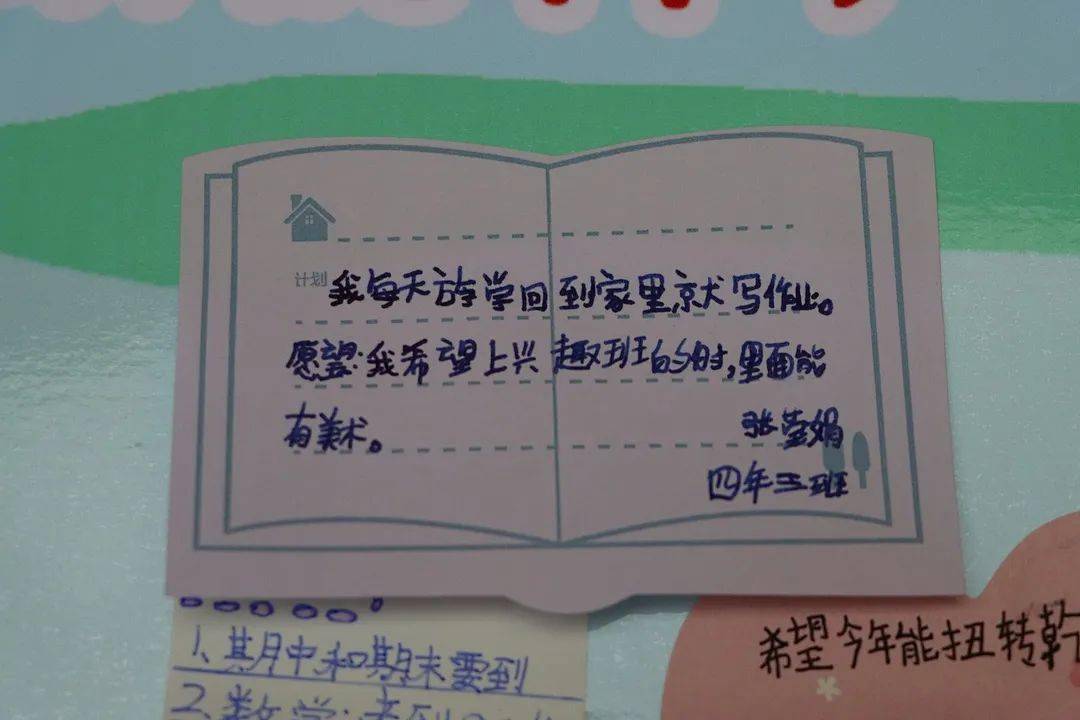 计划
我每天放学回到家里,就写作业。
愿望:我希望上兴趣班的时,里面能
有美术。
张莹娟
四年三班
1、其月中和期末要到
2、数学:考到
希望今年能扭转乾